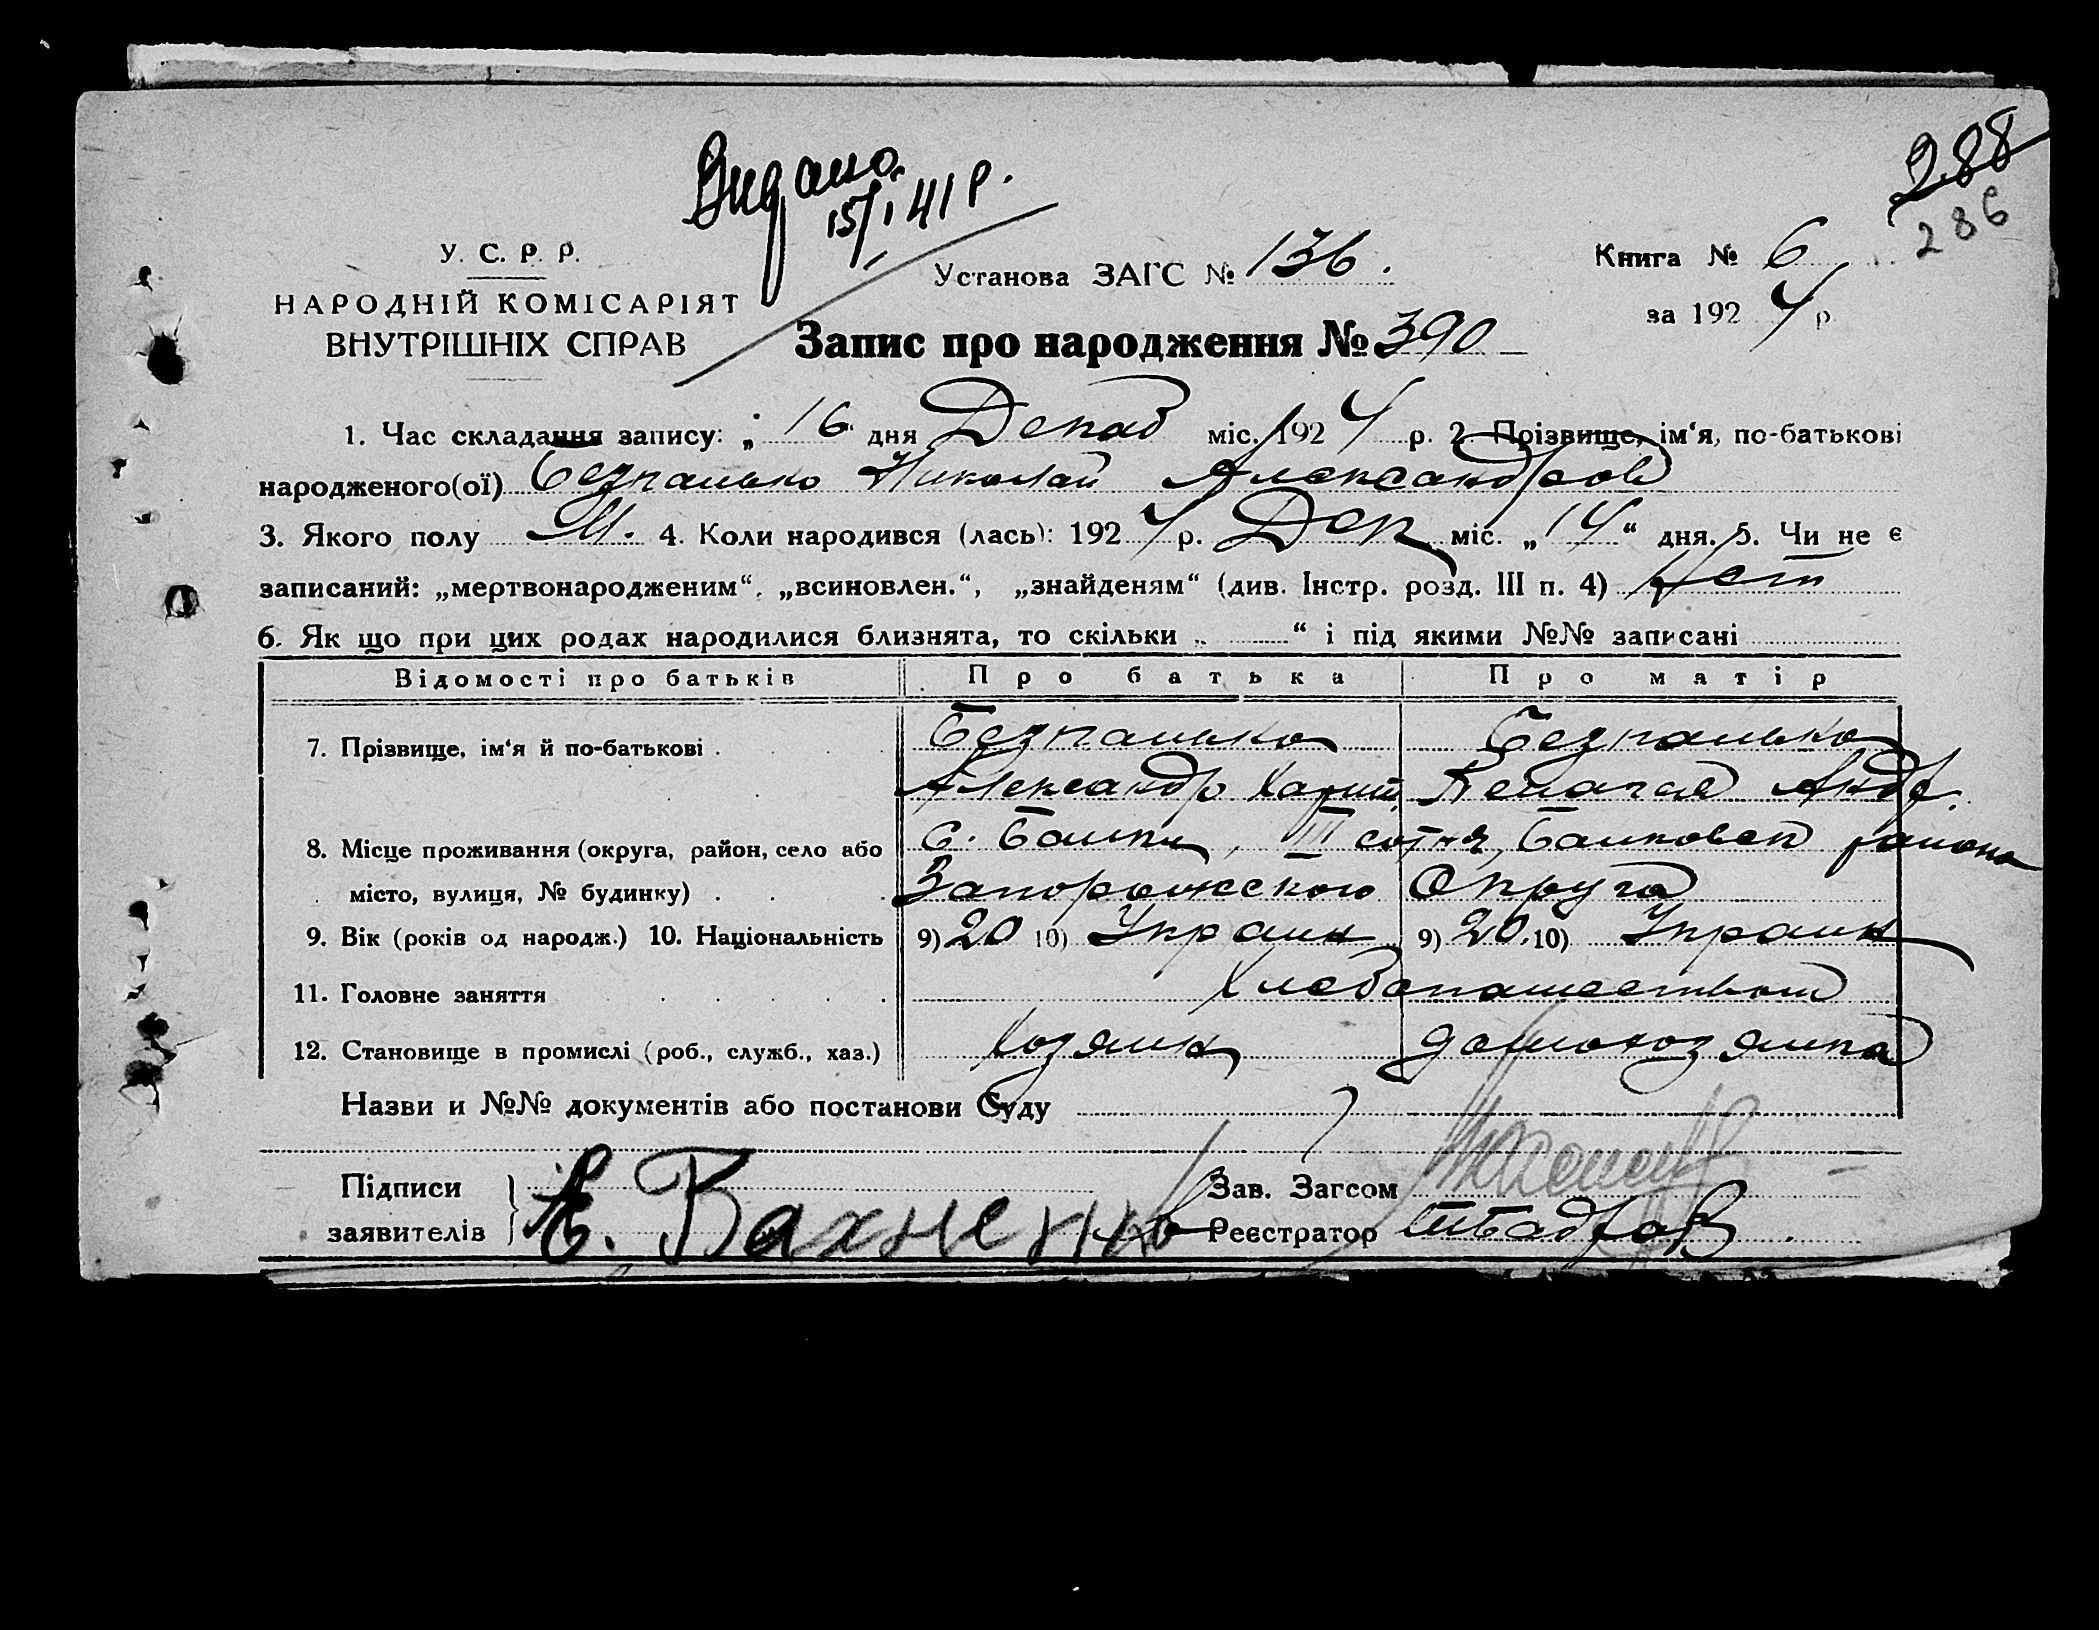 288
286
Видано
15/I 41 р.
У. С. Р. Р.
НАРОДНІЙ КОМІСАРІЯТ
ВНУТРІШНІХ СПРАВ
Установа ЗАГС № 136.
Книга № 6
за 1924 р
Запис про народження № 390
1. Час складання запису: „ 16 дня Декаб міс. 1924 р. 2. Прізвище, ім‘я, по-батькові
народженого(ої) Безпалько Николай Александров
3. Якого полу М. 4. Коли народився (лась): 1924 р. Дек міс. „14“ дня. 5. Чи не є
записаний: „мертвонародженим“, „всиновлен.“, „знайденям“ (див. Інстр. розд. III п. 4) Нет
6. Як що при цих родах народилися близнята, то скільки „ “ і під якими №№ записані
Відомості про батьків Про батька Про матір
7. Прізвище, ім‘я й по-батькові . Безпалько Безпалько
Александр Харит. Андр.
8. Місце проживання (округа, район, село або С. Балки, III сотня, Балковск района
місто, вулиця, № будинку) . Запорожского Округа
9. Вік (років од народж.) 10. Національність 9) 20 10) Украин 9) 20. 10) Украин
11. Головне заняття Хлебопашеством
12. Становище в промислі (роб., служб., хаз.) Хозяин домохозяйка
Назви и №№ документів або постанови Суду
Підписи Зав. Загсом
заявителів Е. Вахненко Реєстратор